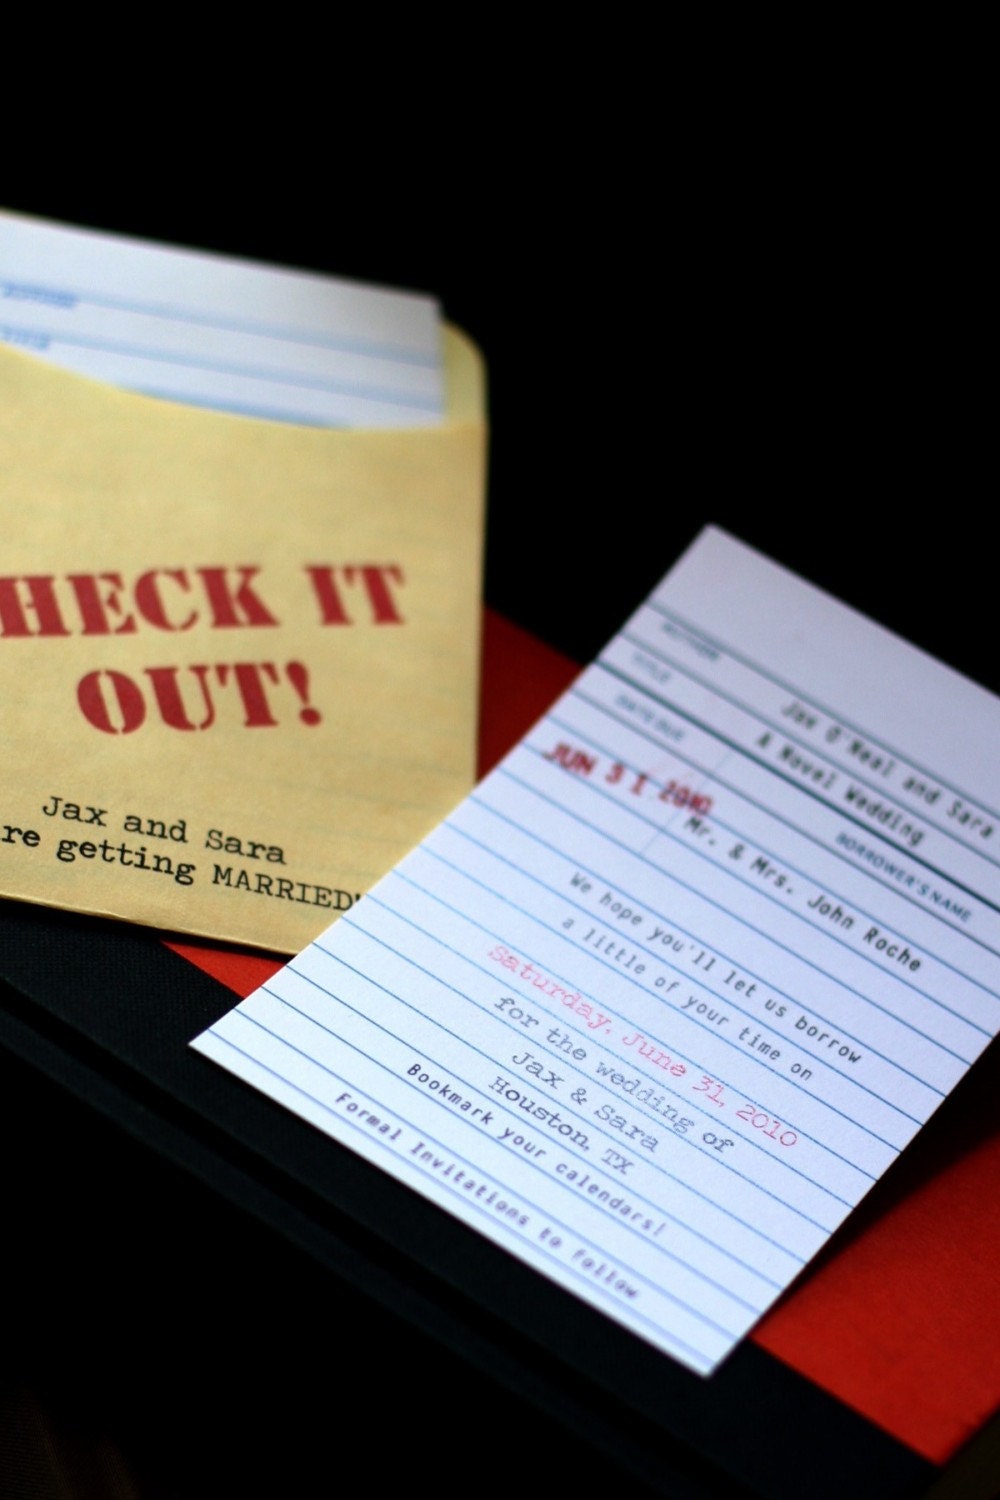 HECK IT
OUT!
Jax and Sara
re getting MARRIED!
AUTHOR
Jax O'Neal and Sara
TITLE
A Novel Wedding
DATE DUE
BORROWER'S NAME
JUN 31 2010
Mr. & Mrs. John Roche
We hope you'll let us borrow
a little of your time on
Saturday, June 31, 2010
for the wedding of
Jax & Sara
Houston, TX
Bookmark your calendars!
Formal Invitations to follow